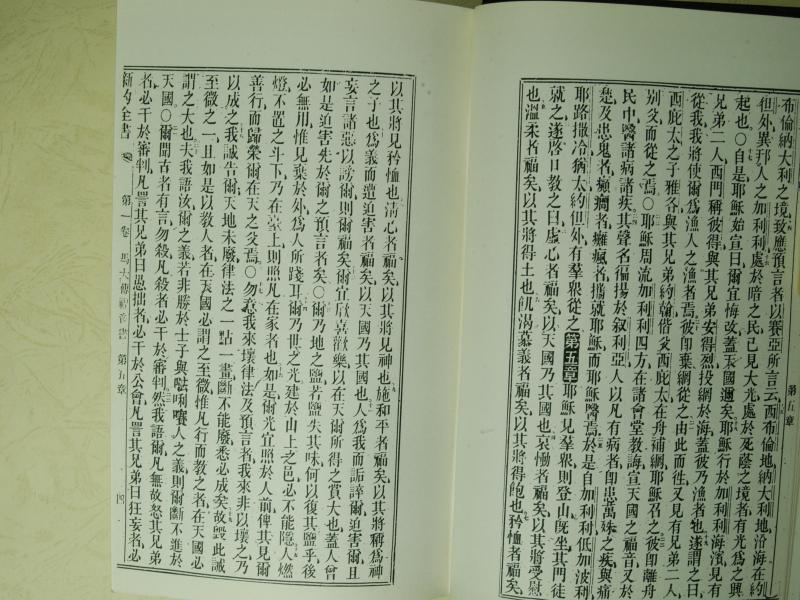 布倫納大利之境致應預言者以賽亞所言云西布倫地納大利地沿海在約
但外異邦人之加利利處於暗之民已見大光處於死蔭之境者有光為之興
起也○自是耶穌始宣曰爾宜悔改蓋天國邇矣耶穌行於加利利海濱見有
兄弟二人西門稱彼得與其兄弟安得烈投網於海蓋彼乃漁者也遂謂之曰
從我我將使爾為漁人之漁者焉彼卽棄網從之由此而往又見有兄弟二人
西庇太之子雅各與其兄弟約翰偕父西庇太在舟補網耶穌召之彼卽離舟
別父而從之焉○耶穌周流加利利四方在諸會堂教誨宣天國之福音又於
民中醫諸病諸疾其聲名徧揚於叙利亞人以凡有病者卽患萬殊之疾與痛
楚及患鬼者癲癇者癱瘋者攜就耶穌而耶穌醫焉於是自加利利低加波利
耶路撒冷猶太約但外有羣衆從之第五章耶穌見羣衆則登山旣坐其門徒
就之遂啓口教之曰虛心者福矣以天國乃其國也哀慟者福矣以其將受慰
也溫柔者福矣以其將得土也飢渴慕義者福矣以其將得飽也矜恤者福矣
第五章
以其將見矜恤也清心者福矣以其將見神也施和平者福矣以其將稱為神
之子也為義而遭迫害者福矣以天國乃其國也人為我而詬誶爾迫害爾且
妄言諸惡以謗爾則爾福矣爾宜欣喜歡樂以在天爾所得之賞大也蓋人曾
如是迫害先於爾之預言者矣○爾乃地之鹽若鹽失其味何以復其鹽乎後
必無用惟見棄於外為人所踐耳爾乃世之光建於山上之邑必不能隱人燃
燈不置之斗下乃在臺上則照凡在家者也如是爾光宜照於人前俾其見爾
善行而歸榮爾在天之父焉○勿意我來壞律法及預言者我來非以壞之乃
以成之我誠告爾天地未廢律法之一點一畫斷不能廢悉必成矣故毀此誡
至微之一且如是以教人者在天國必謂之至微惟凡行而教之者在天國必
謂之大也夫我語汝爾之義若非勝於士子與𠵽唎嚽人之義則爾斷不進於
天國○爾聞古者有言勿殺凡殺者必干於審判然我語爾凡無故怒其兄弟
者必干於審判凡詈其兄弟曰愚拙者必干於公會凡詈其兄弟曰狂妄者必
新約全書 第一卷 馬太傳福音書 第五章 四